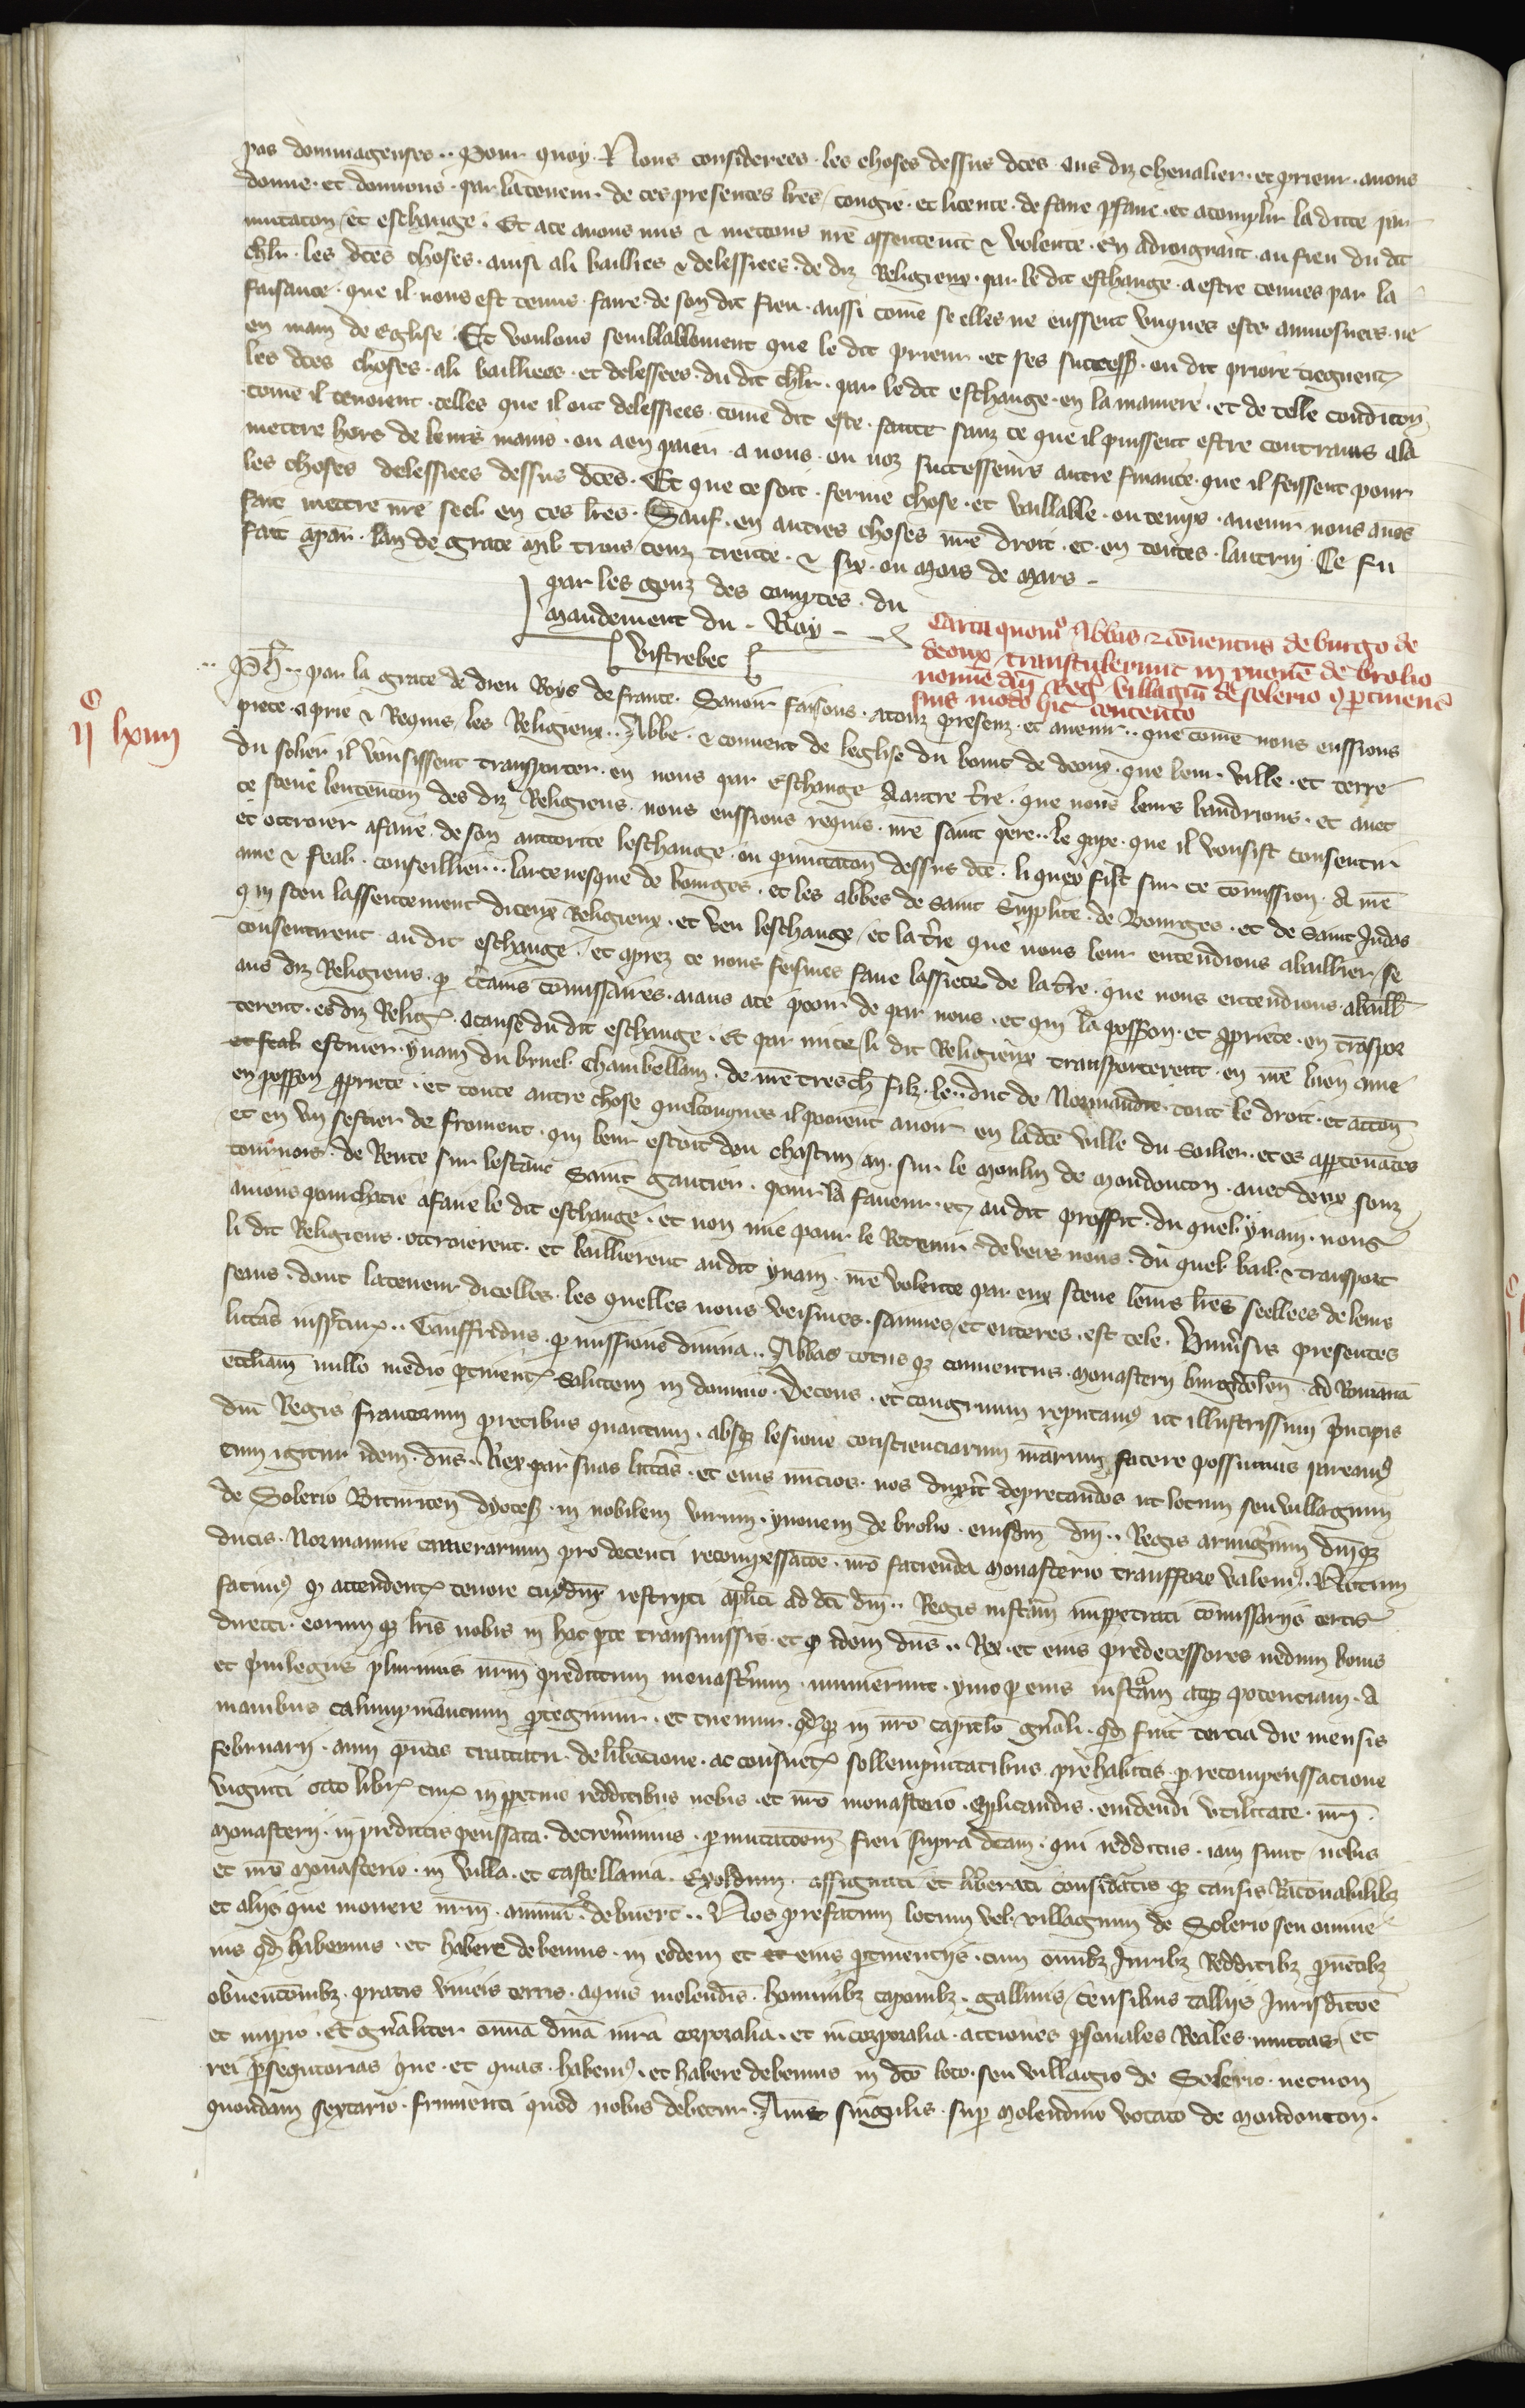 pas dommageuses .. Pour quoy. Nous considerees. les choses dessus dc̃es aus diz chevalier. et prieur. avons
donne. et donnons. par la teneur. de ces presentes lr̃es / congie. et licence. de faire p̃faire. et acomplir la dicte per
mutacon / et eschange. Et ace avons mis & mettons nr̃e assentem̃t & volente. En adioignant au fieu du dit
chlr̃. les dc̃es choses. ainsi ali baillies & delessiees. de diz Religieux. par le dit eschange. a estre tenues par la
faisance. que il nous est tenus faire de son dit fieu. aussi com̃e se elles ne eussent unques este aumosnees. ne
en main de eglise. Et voulons semblablement que le dit prieur. et ses success̃. ou dit priore tiegnent
les dc̃es choses. ali bailliees. et delessees. du dit chlr̃. par le dit eschange. en la maniere. et de telle condicon̄
com̃e il tenoient. celles que il ont delessiees. com̃e dit este. sanz ce que il puissent estre contrains ala
mettre hors de leurs mains. ou a en paier. a nous. ou noz successeurs autre finance. que il feissent pour
les choses delessiees dessus dc̃es. Et que ce soit. ferme chose. et vallable. ou temps. avenir nous avõs
fait mettre nr̃e seel en ces lr̃es. Sauf. en autres choses nr̃e droit. et. en toutes. lautruy. Ce fu
fait apar̃. lan de grace mil trois cenz trente. & six. ou mois de mars.
par les genz des comptes. du
mandement du. Roy
Vistrebec
Carta quomõ Abbas & cõventus de burgo de
deoux / transtulerunt in yvonẽ de brolio
nomĩe dñi Reg̃ villagiũ de solerio cũ p̃tinenc̃
suis modo hic contento
.. Ph̃ .. par la grace de dieu Roys de france. Savoir faisons. a touz presenz. et avenir .. que com̃e nous eussions
IIᶜ LXIIII
piece. a prie & Requis, les Religieux .. Abbe. & convent de leglise du bourc de deoux. que leur. ville. et terre
du solier il vousissent transporter. en nous par Eschange dautre t̃re. que nous leurs baudrions. et avec
ce sceue lentencon̄ des diz Religieus. nous eussions requis. nr̃e saint pere .. le pape. que il vousist consentir
et ottroier afaire. de son auctorite leschange. ou p̃mutacon̄ dessus dc̃e. li quex fist sur ce com̃ission. A nr̃e
ame & feal. conseillier .. larcevesque de bourges. et les abbes de saint Supplice. de Bourges. et de saint Iudas
qui sceu lassentement diceux Religieux. et veu leschange / et la t̃re que nous leur entendions abaillier / se
consentirent au dit eschange. et aprez ce nous feismes faire lassiete de la t̃re. que nous entendions. abaill̃
aus diz Religieus. p̃ c̃tains com̃issaires. aians ace pooir de par nous. et qui la poss̃on. et p̃priete. en trãspor
terent. es diz Relig̃. a cause du dit eschange. Et par mi ce / li dit Religieux transporterent. en nr̃e bien ame
et feal escuier. yvain du bruel. chambellain. de nr̃e tresch̃ filz. le .. duc de Normandie. tout le droit. et action̄
en poss̃on p̃priete. et toute autre chose quelconques il povoient avoir en la dc̃e ville du Solier. et es appartenãces
et en un sestier de froment. qui leur estoit deu chascun an. sur le moulin de mondoucon. avec deux souz
tournois. de Rente sur lestanc Saint gautier. pour la faveur. et au dit proffit. du quel yvain. nous
avions pourchacie afaire le dit eschange. et non mie pour le Retenir. devers nous. du quel. bail & transport
li dit Religieus. ottroierent. et baillierent audit yvain. nr̃e volente par eux sceue leurs lr̃es seellees de leurs
seaus. dont la teneur dicelles. les quelles nous veismes. saines / et enteres. est tele. Uniṽsis presentes
litt̃as insp̃cturis .. Gauffridus. p̃missione divina .. Abbas totus q̃ conventus. monasterii burgidolen̄. ad Romanã
eccl̃iam nullo medio p̃tinent̃ salutem in domino. Decens. et congruum reputam̃ ut illustrissimi p̃ncipis
dñi Regis francorum precibus quantum. absq̃ lesione conscienciarum nr̃arum facere possumus paream̃
cum igitur idem. dñs .. Rex par suas litt̃as. et eius nuncios. nos duxit deprecandos ut locum seu villagium
de Solerio Bituricen̄ dyoces̃. in nobilem virum. yvonem de brolio. eiusdem dñi .. Regis armigerum dñiq̃
ducis. Normannie camerarium pro decenti recompenssacõe. nr̃o facienda monasterio transfferre valem̃. Notum
facim̃ q̃ attendent̃ tenore cuiusdam rescripti ap̃lici ad dc̃i dñi .. Regis instãm impetrati com̃issariis certis
directi. eorum q̃ lr̃is nobis in hac p̃te transmissis. et q̃ idem dñs .. Rex. et eius predecessores nedum bonis
et p̃vilegiis plurimis nr̃m predictum monast̃ium. munierunt. ymo p̃ eius instãm atq̃ potenciam. A
manibus calumpniancium p̃tegimur. et tuemur. q̃dq̃ in nr̃o capitulo gñali. q̃d fuit tercia die mensis
februarii. anni p̃ntis tractatu. deliberacione. ac consuet̃ sollempnitatibus. prehabitis. p̃ recompenssacione
viginti octo libr̃ tur̃ in perpetuo redditibus nobis. et nr̃o monasterio. applicandis. evidenti utilitate. nr̃i
monasterii. in predictis penssata. decrevimus. p̃mutacõem fieri supra dc̃am. qui redditus. iam sunt nobis
et nr̃o monasterio. in villa. et castellania. Exolduni. assignati et liberati considãtis q̃ causis Rac̃onabilibz
et aliis que movere nr̃m. animũ debuert̃ .. Nos prefatum locum vel. villagium de Solerio seu omne
ius q̃d habemus. et habere debemus. in eodem et eius p̃tinenciis. cum omĩbz Iuribz Redditibz p̃ventibz
obvenc̃onibz. pratis vineis terris. aquis molendĩs. hominibz caponibz. gallinis / censibus talliis Iurisdic̃oe
et imperio. Et gñaliter omnia iura corporalia. et incorporalia. acciones p̃sonales Reales. mixtas / et
rei p̃sequtorias que. et quas. habem̃. et habere debemus in dc̃o loco. seu villagio de Solerio. necnon
quondam sextario. frumenti quod nobis debetur. Annis singulis. sup̃ molendino vocato de mondoucon.